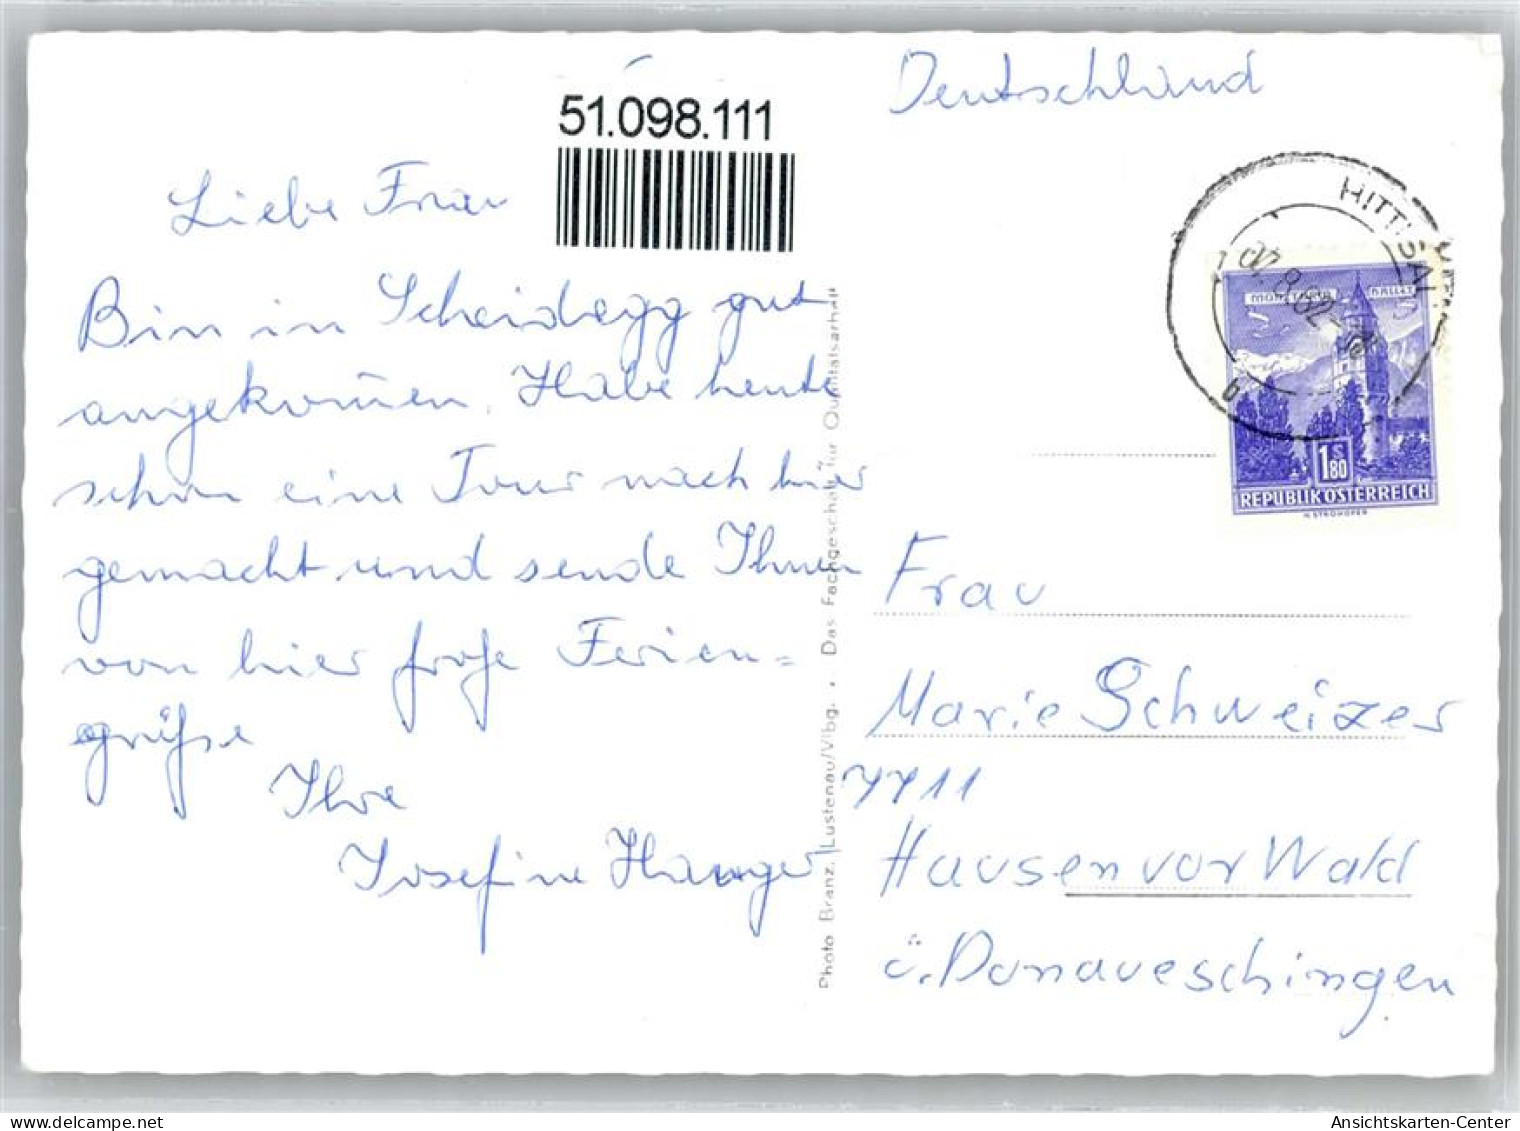 51.098.111
Liebe Frau
Bin in Scheidegg gut
angekom̄en. Habe heute
schon eine Tour nach hier
gemacht und sende Ihnen
von hier frohe Ferien=
grüße
Ihre
Josefine
Photo Branz, Lustenau/Vlbg. • Das Fachgeschäft für Qualitätsarbeit
Deutschland
HITTISAU
MÜNZTURM HALL I T
1 S 80
REPUBLIK ÖSTERREICH
H. STROHOFER
Frau
Marie Schweizer
7711
Hausen vor Wald
ü. Donaueschingen
Ansichtskarten-Center